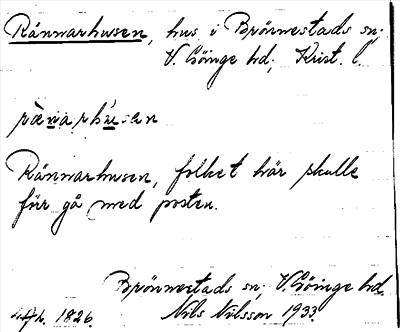 Rännarhusen, hus i Brönnestads sn;
V. Göinge hd; Krist. l.
rænarhu̇sen
Rännarhusen, folket här skulle
förr gå med posten.
Brönnestads sn; V. Göinge hd.
1826. Nils Nilsson 1933